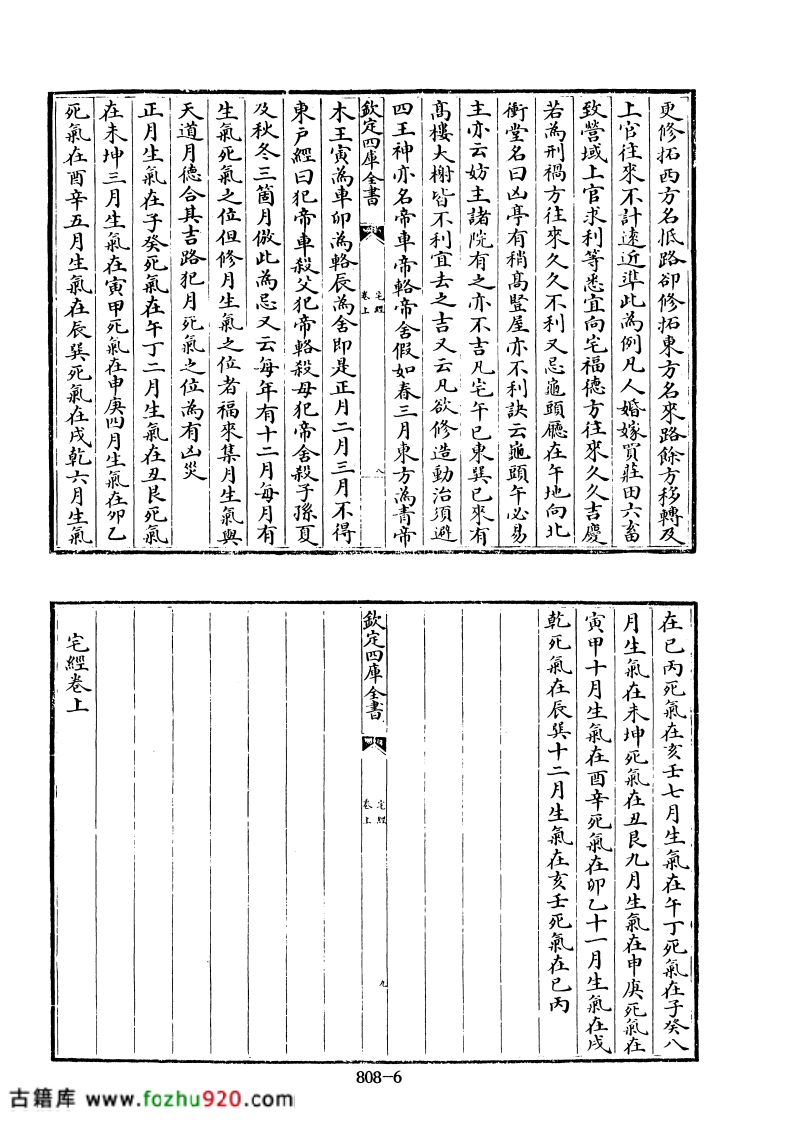 更修拓西方名抵路卻修拓東方名來路餘方移轉及
上官往來不計遠近準此為例凡人婚嫁買莊田六畜
致營域上官求利等悉宜向宅福德方往來久久吉慶
若為刑禍方往來久久不利又忌龜頭廳在午地向北
衝堂名曰凶亭有稍高豎屋亦不利訣云龜頭午必易
主亦云妨主諸院有之亦不吉凡宅午巳東巽巳來有
高樓大榭皆不利宜去之吉又云凡欲修造動治須避
四王神亦名帝車帝輅帝舍假如春三月東方為青帝
欽定四庫全書
宅經
卷上
八
木王寅為車卯為輅辰為舍即是正月二月三月不得
東戶經曰犯帝車殺父犯帝輅殺母犯帝舍殺子孫夏
及秋冬三箇月倣此為忌又云每年有十二月每月有
生氣死氣之位但修月生氣之位者福來集月生氣與
天道月德合其吉路犯月死氣之位為有凶災
正月生氣在子癸死氣在午丁二月生氣在丑艮死氣
在未坤三月生氣在寅甲死氣在申庚四月生氣在卯乙
死氣在酉辛五月生氣在辰巽死氣在戌乾六月生氣
在巳丙死氣在亥壬七月生氣在午丁死氣在子癸八
月生氣在未坤死氣在丑艮九月生氣在申庚死氣在
寅甲十月生氣在酉辛死氣在卯乙十一月生氣在戌
乾死氣在辰巽十二月生氣在亥壬死氣在巳丙
欽定四庫全書
宅經
卷上
九
宅經卷上
808-6
古籍库 www.fozhu920.com